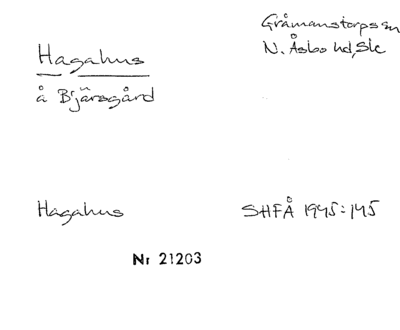 Gråmanstorps sn
N. Åsbo hd, Sk
Hagahus
å Bjärsgård
Hagahus
SHFÅ 1945:145
Nr 21203